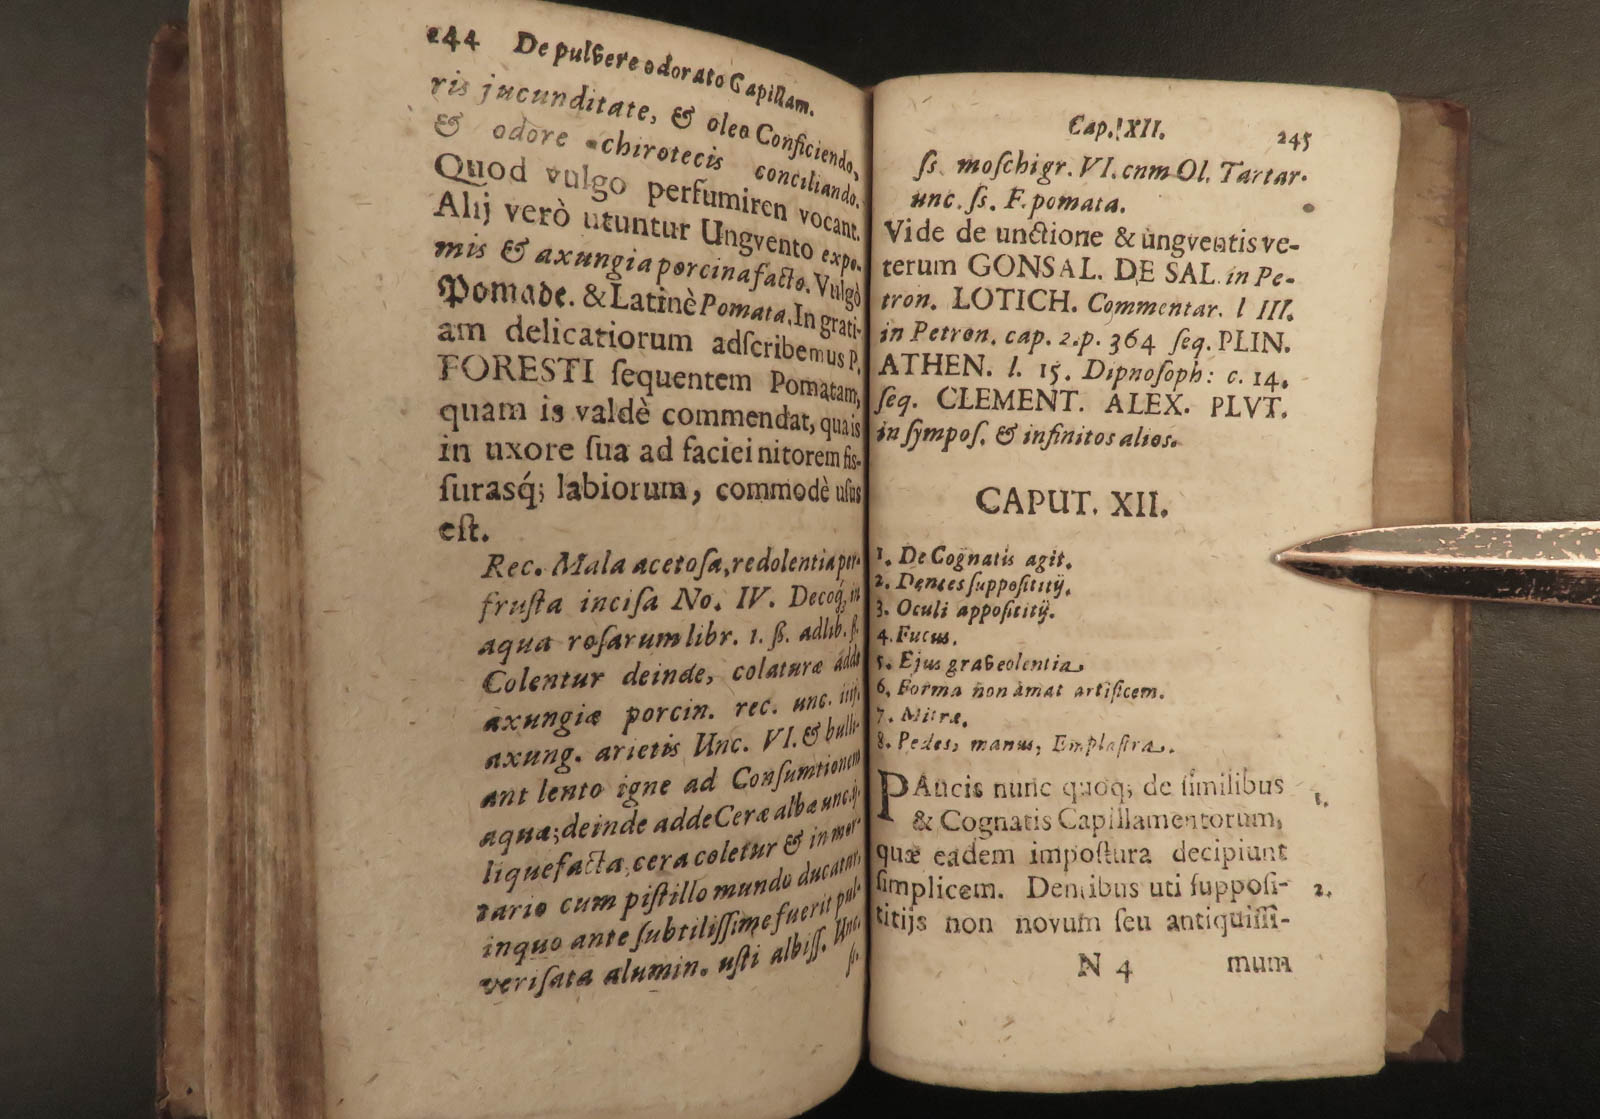 244 De pulvere odorato Capillam.
ris jucunditate, & oleo Conficiendo,
& odore chirotecis conciliando.
Quod vulgo perfumiren vocant.
Alij verò utuntur Ungvento expo-
mis & axungia porcina facto. Vulgò
Pomade. & Latinè Pomata. In grati-
am delicatiorum adſcribemus P.
FORESTI ſequentem Pomatam,
quam is valdè commendat, qua is
in uxore ſua ad faciei nitorem fiſ-
ſurasq́; labiorum, commodè uſus
eſt.
Rec. Mala acetoſa, redolentia per-
fruſta inciſa No. IV. Decoq́, in
aqua roſarum libr. 1. ß. adlib. ß.
Colentur deinde, colaturæ adde
axungiæ porcin. rec. unc. iiij.
axung. arietis Unc. VI. & bulli-
ant lento igne ad Conſumtionem
aquæ; deinde adde Ceræ albæ unc. ij.
liquefacta, cera coletur & in mor-
tario cum piſtillo mundo ducatur,
inquo ante ſubtiliſſime fuerit pul-
veriſata alumin. uſti albiſſ. Unc.
ſs.
Cap. XII. 245
ſs. moſchi gr. VI. cnm Ol. Tartar.
unc. ſs. F. pomata.
Vide de unctione & ungventis ve-
terum GONSAL. DE SAL. in Pe-
tron. LOTICH. Commentar. l III.
in Petron. cap. 2. p. 364 ſeq. PLIN.
ATHEN. l. 15. Dipnoſoph: c. 14.
ſeq. CLEMENT. ALEX. PLVT.
in ſympoſ. & infinitos alios.
CAPUT. XII.
1. De Cognatis agit.
2. Dentes ſuppoſititij.
3. Oculi appoſititij.
4. Fucus.
5. Ejus graveolentia.
6. Forma non amat artificem.
7. Mitræ.
8. Pedes, manus, Emplaſtra.
PAucis nunc quoq; de ſimilibus 1.
& Cognatis Capillamentorum,
quæ eadem impoſtura decipiunt
ſimplicem. Dentibus uti ſuppoſi- 2.
titijs non novum ſeu antiquiſſi-
N 4 mum